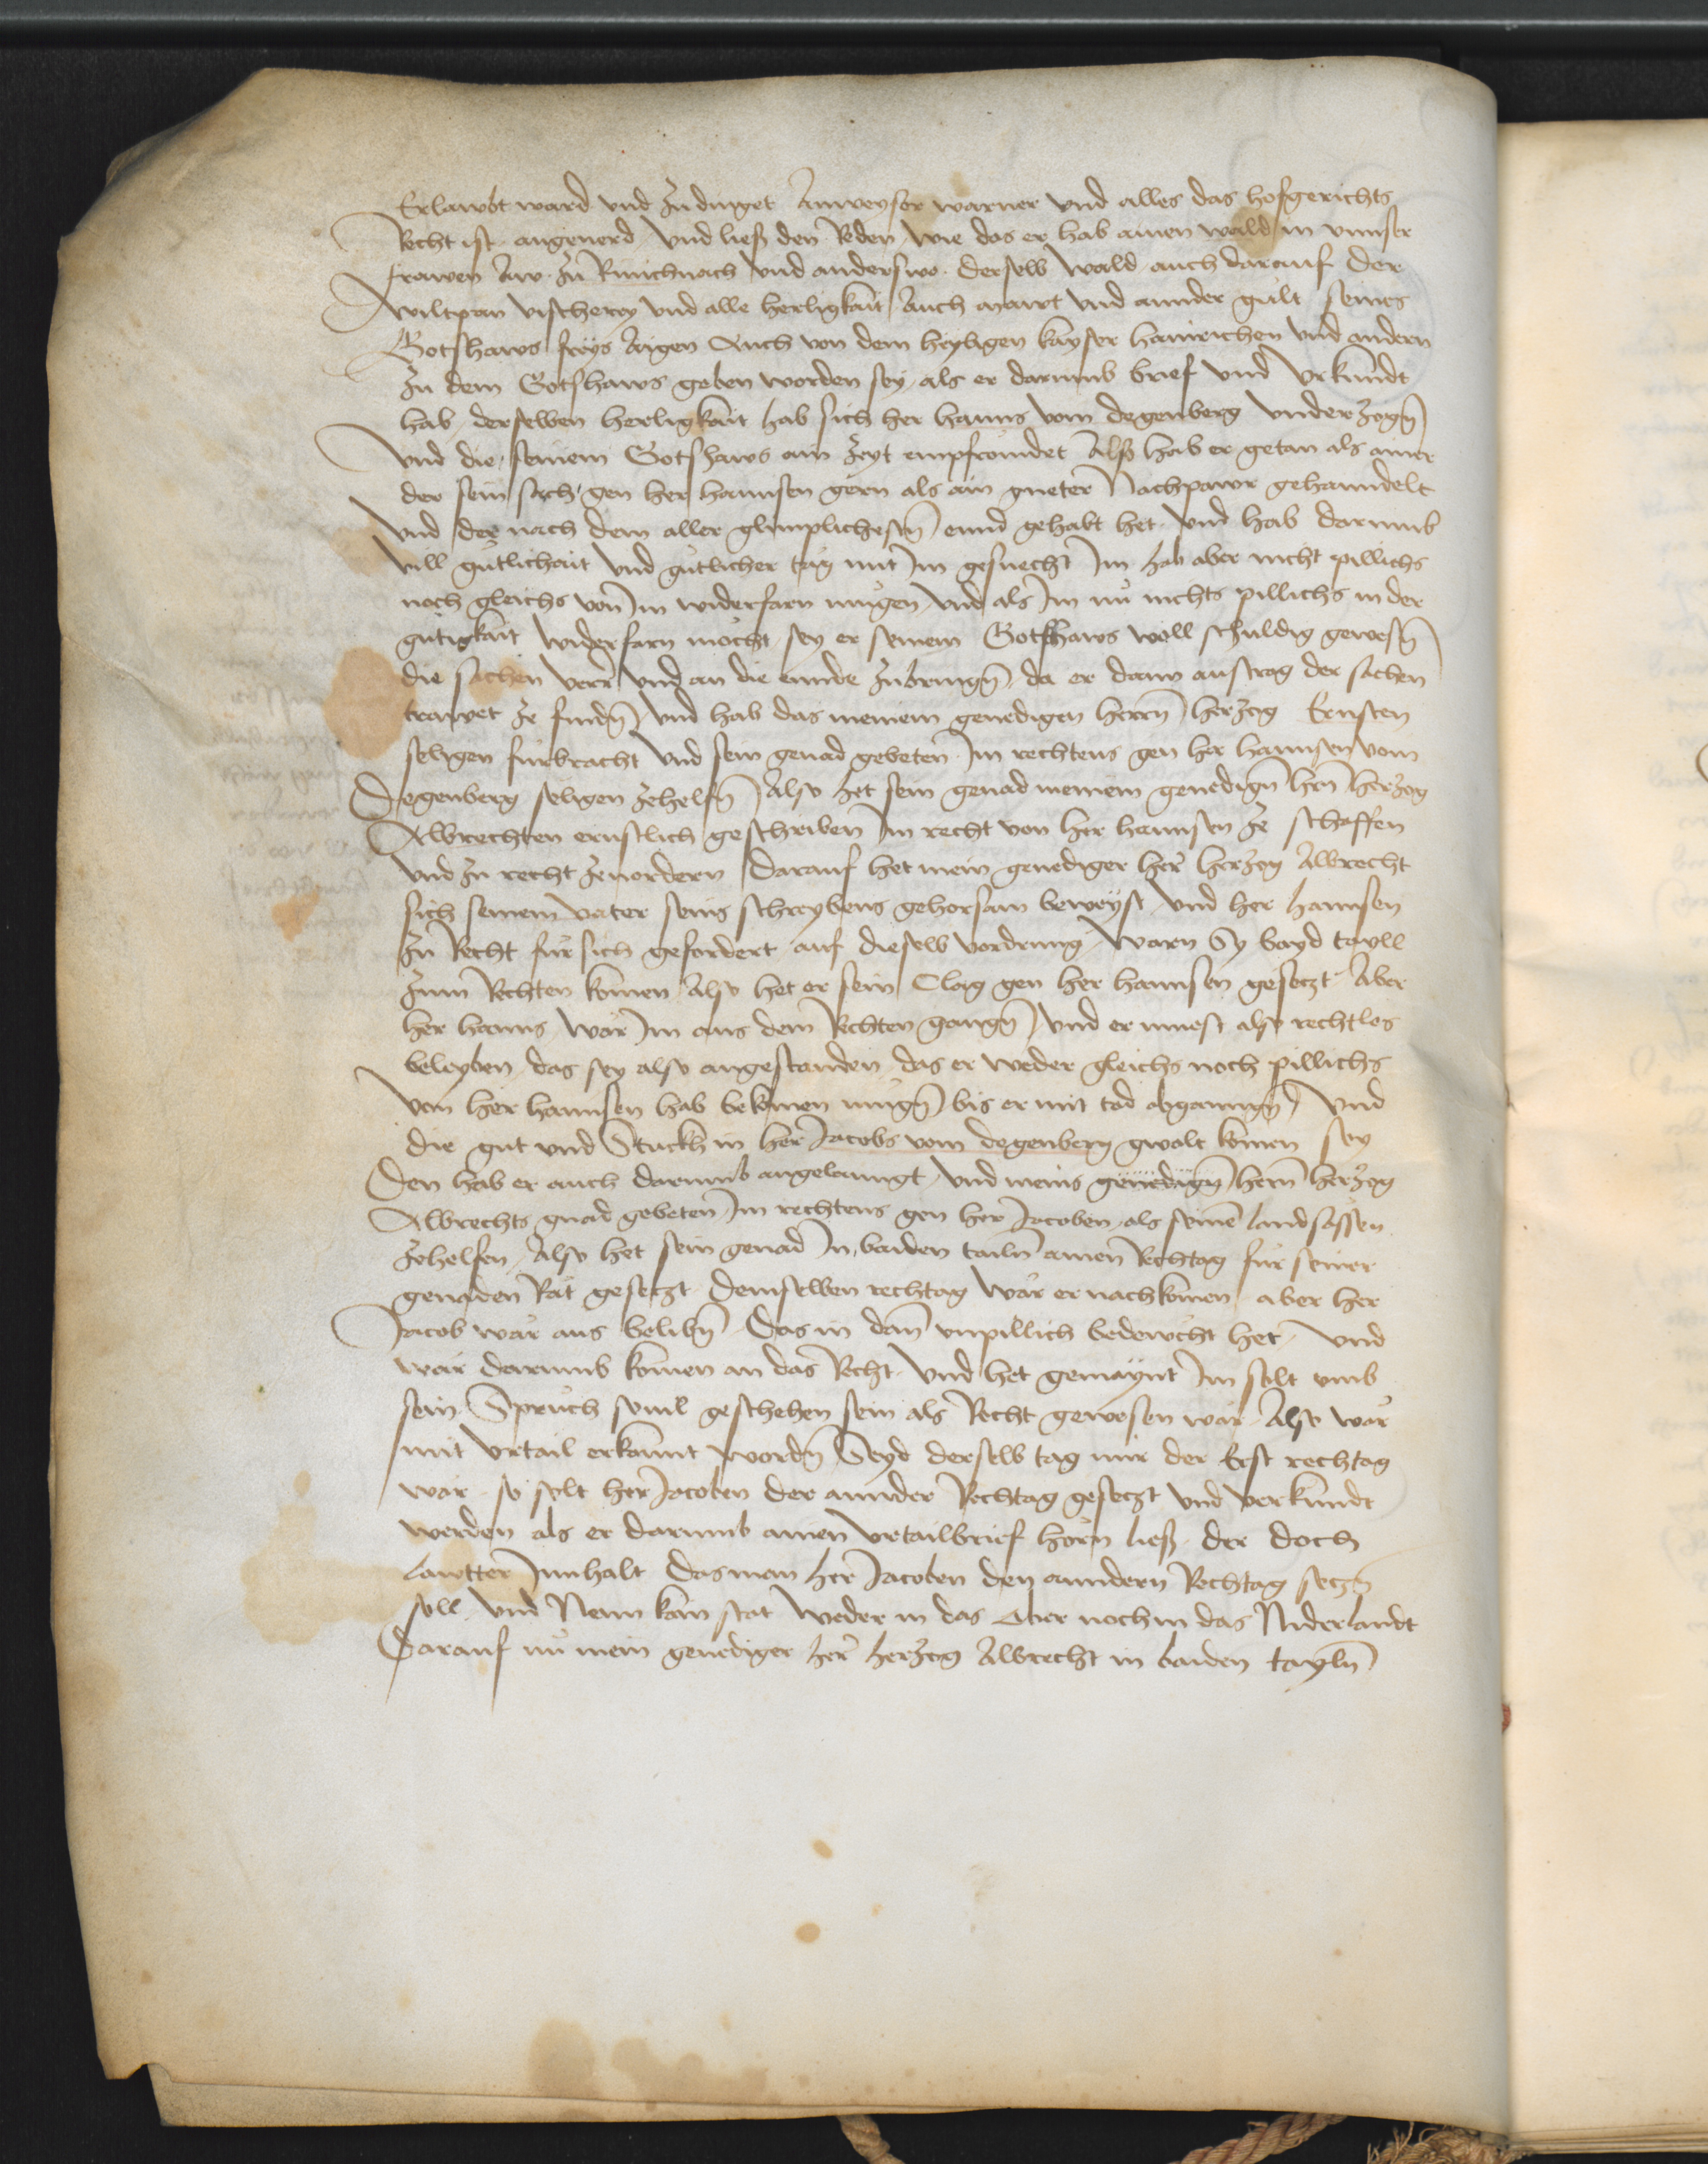 Erlawbt ward vnd zudinget Anweyser warner vnd alles das hofgerichts
Recht ist angeuerd vnd ließ den Reden wie das er hab ainen wald in vnnser
frawen Aw zu Rinichnach vnd anderswo derselb wald auch darauf der
wiltpan vischerey vnd alle herligkait Auch mawt vnd annder gült seines
Gotshaws freys Aigen Auch von dem heyligen kayser hainrichen vnd andern
zu dem Gotshaws geben worden sey als er darumb brief vnd vrkundt
hab derselben herligkait hab sich her hanns vom degenberg vnderzogn̄
vnd die seinem Gotshaws ain zeyt empfromdet Alß hab er getan als ainer
der sein sach gen her hannsen gern als ain gueter Nachpawr gehanndelt
vnd der nach dem aller glimplichestn̄ ennd gehabt het vnd hab darumb
vill gütlichait vnd gütlicher täg mit Im gesuecht Im hab aber nicht pillichs
noch gleichs von Im widerfarn mügen vnd als Im nu nichts pillichs in der
gütigkait widerfarn möcht sey er seinem Gotshaws woll schuldig gewesn̄
die sachen verr vnd an die ennde zubringn̄ da er dann austrag der sachen
trawet ze findn̄ vnd hab das meinem genedigen herrn̄ herzog Ernsten
seligen fürbracht vnd sein genad gebeten Im rechtens gen her hannsen vom
Degenberg seligen zehelfn̄ Also het sein genad meinem genedign̄ hrn̄ herzog
Albrechten ernstlich geschriben Im recht von her hannsen ze schaffen
vnd zu recht zeuordern darauf het mein genediger her herzog Albrecht
sich seinem vater seins schreybens gehorsam beweyst vnd her hannsen
zu Recht für sich gefordert auf dieselb vordrung warn Sy bayd tayll
zum Rechten komen Also het er sein Clag gen her hannsen gesetzt Aber
her hanns wär Im aus dem Rechten gangn̄ vnd er muest also rechtlos
beleyben das sey also angestanden das er weder gleichs noch pillichs
von her hannsen hab bekomen mügn̄ bis er mit tod abganngn̄ vnd
die gut vnd Stuckh in her Jacobs vom degenberg gwalt komen sey
Den hab er auch darumb angelanngt vnd meins genedign̄ hern̄ herzog
Albrechts gnad gebeten Im rechtens gen her Jacoben als seinē landsässen
zehelfen Also het sein genad In baiden tailn̄ ainen Rechtag für seiner
genaden Rät gesetzt demselben rechtag wär er nachkomen aber her
Jacob wär aus belibn̄ Das in dan̄ vnpillich bedewcht het vnd
wär darumb komen an das Recht vnd het gemaynt Im solt vmb
sein Sprüch souil geschehen sein als Recht gewesen wär Also wär
mit vrtail erkannt wordn̄ Seyd derselb tag nur der Erst rechtag
wär so solt her Jacoben der annder Rechtag gesetzt vnd verkundt
werden als er darumb ainen vrtailbrief hörn ließ der doch
lawtter Innhalt das man her Jacoben den anndern Rechtag setzn̄
soll vnd Nenn kain stat weder in das Ober noch in das Niderlandt
Darauf nu mein genediger her herzog Albrecht in baiden tayln̄